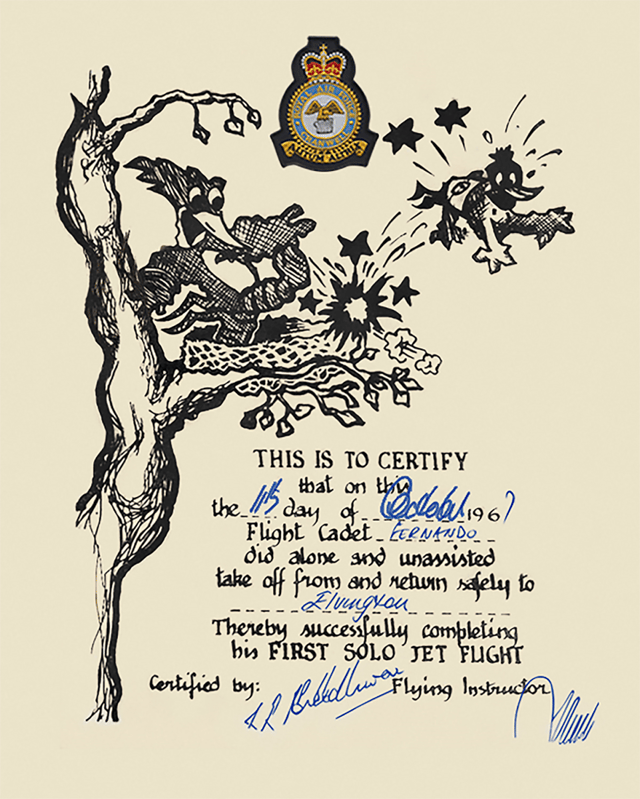 ROYAL AIR FORCE
CRANWELL
ALTIUM ALTIUS
THIS IS TO CERTIFY
that on this
the 11th day of October 1967
Flight Cadet FERNANDO
did alone and unassisted
take off from and return safely to
Elvington
Thereby successfully completing
his FIRST SOLO JET FLIGHT
Certified by: Flying Instructor